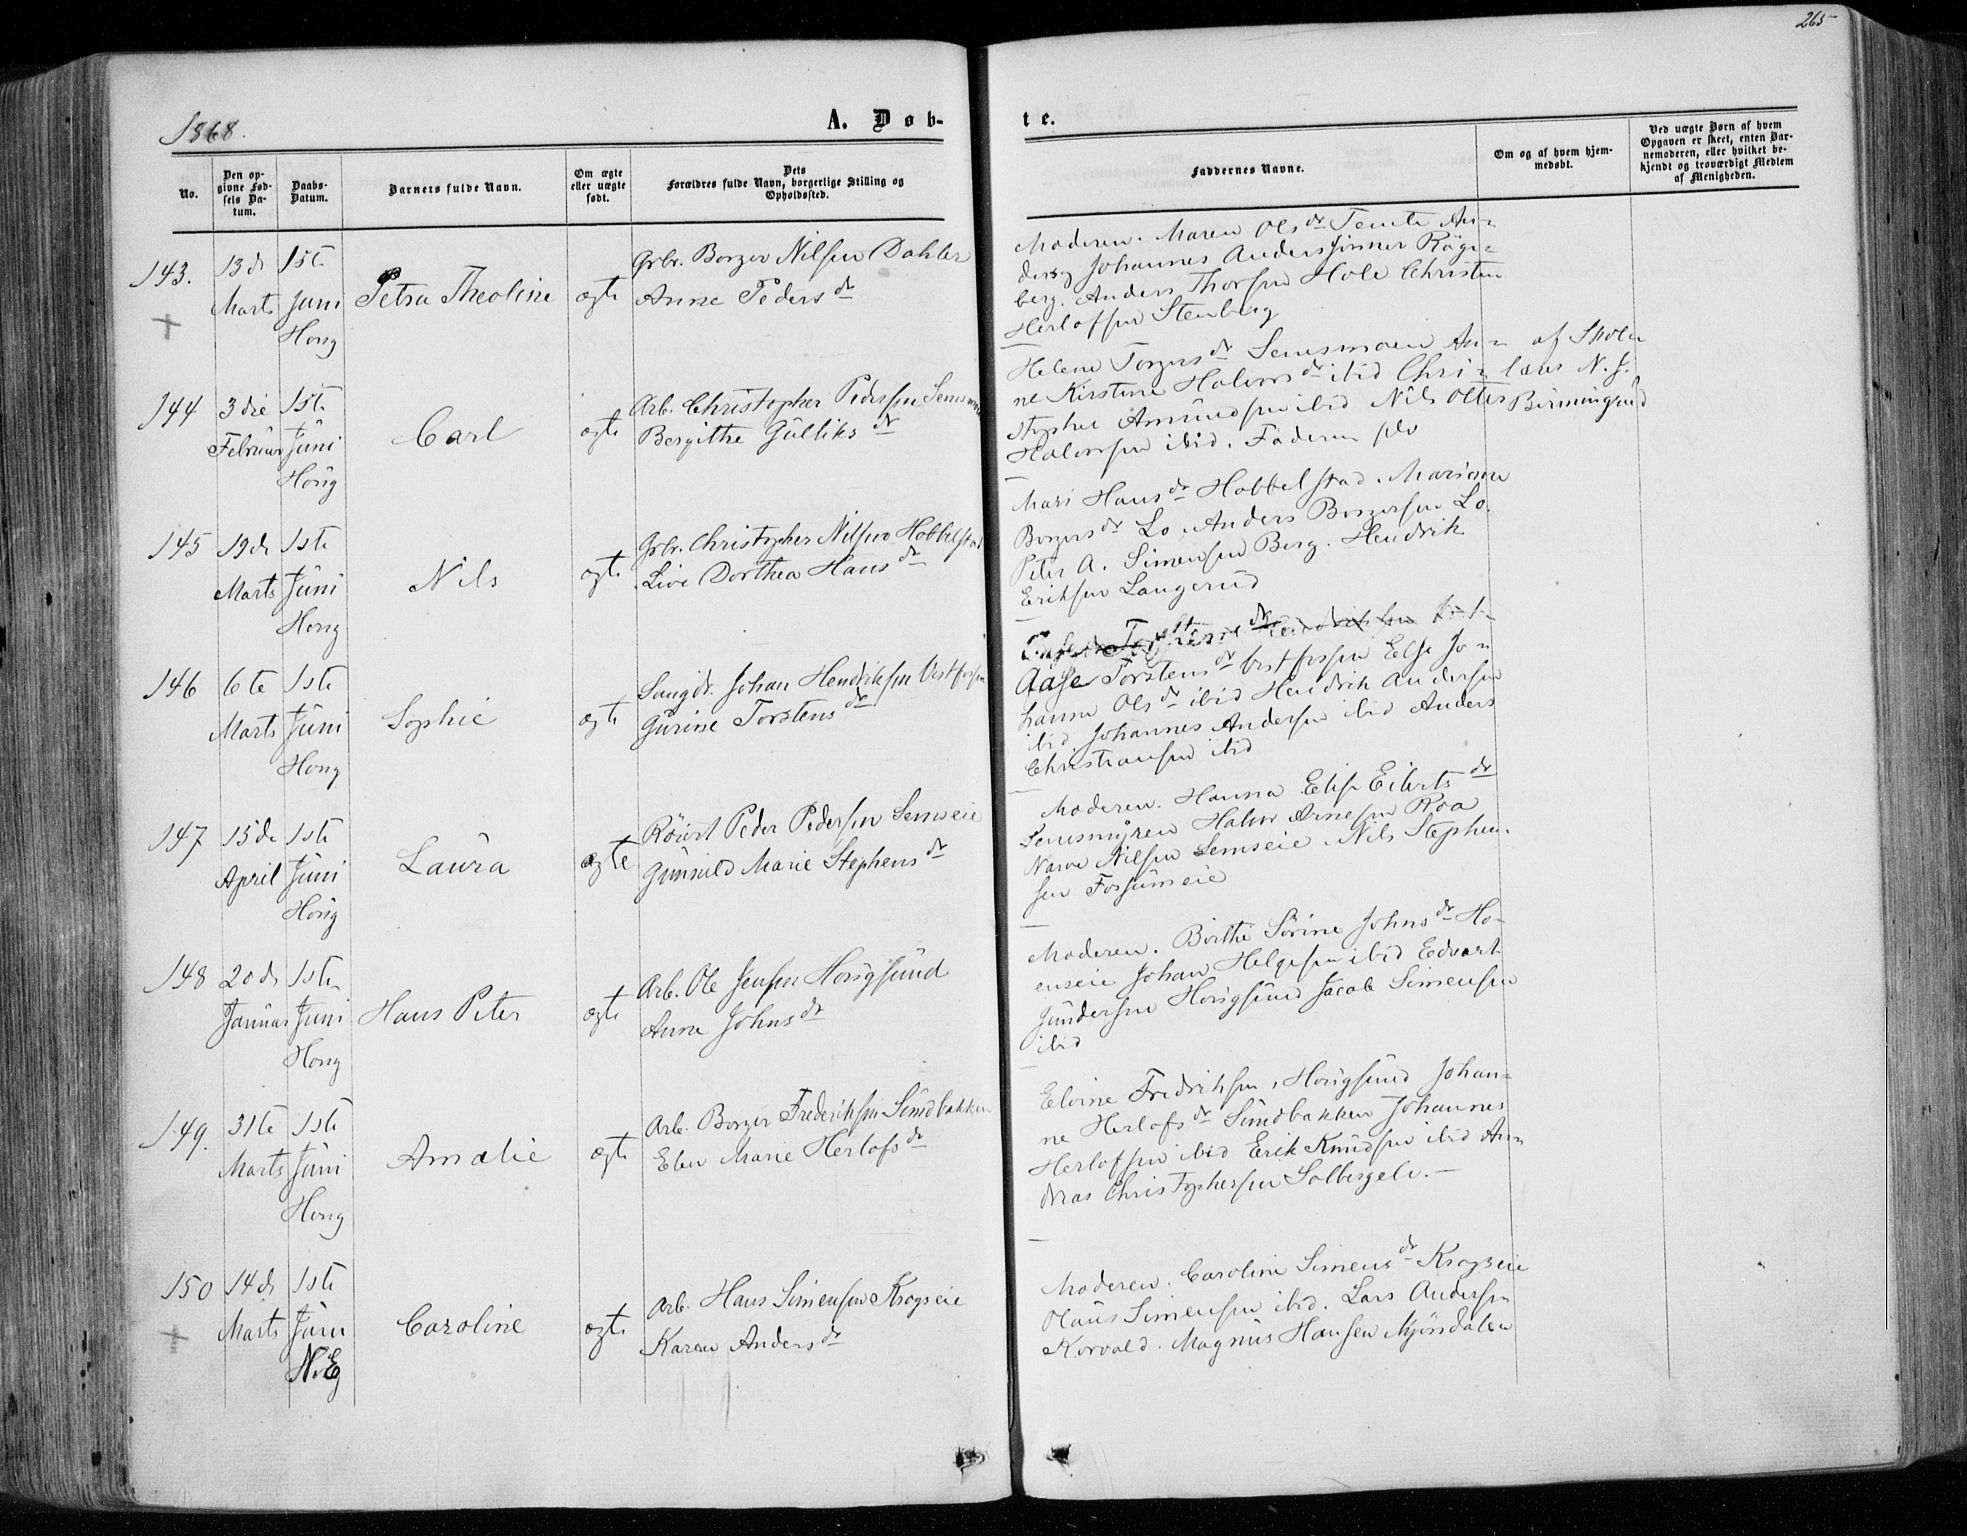 265
1868.
A. Døb-
te.
No.
Den op-
givne Fød-
sels Da-
tum.
Daabs-
Datum.
Barnets fulde Navn.
Om ægte
eller uægte
født.
Dets
Forældres fulde Navn, borgerlige Stilling og
Opholdssted.
Faddernes Navne.
Om og af hvem hjem-
medøbt.
Ved uægte Børn af hvem
Opgaven er skeet, enten Bar-
nemoderen, eller hvilket be-
kjendt og troværdigt Medlem
af Menigheden.
143.
13de
Marts
1ste
Juni
Houg
Petra Theoline
ægte
Grbr. Borger Nilsen Dahler
Anne Pedersdr
Moderen. Maren Olsdr Temte An-
ders Johannes Anders
berg. Anders Thorsen Hole Christen
Herlofsen Stenberg
144
3die
Februar
1ste
Juni
Houg
Carl
ægte
Arb. Christopher Pedersen Semsmoen
Bergithe Gulliksdr
Helene Torgersdr Semsmoen An-
ne Kirstine Halvorsdr ibid Chri-
stopher Amundsen ibid Nils
Halvorsen ibid. Faderen selv
af Skole
lærer N. J.
145
19de
Marts
1ste
Juni
Houg
Nils
ægte
Grbr. Christopher Nilsen Hobbelstad
Live Dorthea Hansdr
Mari Hansdr Hobbelstad. Mariane
Borgersdr Lo. Anders Borgersen Lo.
Peter A. Simensen Berg. Hendrik
Eriksen Langerud
146
6te
Marts
1ste
Juni
Houg
Sophie
ægte
Saugdr. Johan Hendriksen Vestfossen
Gurine Torstensdr
Aase Torstensdr Vestfossen Else Jo-
hanna Olsdr ibid Hendrik Andersen
ibid. Johannes Andersen ibid Anders
Christiansen ibid
147
15de
April
1ste
Juni
Houg
Laura
ægte
Peder Pedersen Semseie
Gunnild Marie Stephensdr
Moderen. Hanna Elise Eilertsdr
Semsmyren Halvor Arnesen Roa
Narve Nilsen Semseie. Nils Stephen-
sen Fossumeie
148
20de
Januar
1ste
Juni
Houg
Hans Peter
ægte
Arb. Ole Jensen Hougsund
Anne Johnsdr
Moderen. Birthe Sørine Johnsdr Ho-
enseie Johan Helgesen ibid Edvart
Gundersen Hougsund Jacob Simensen
ibid
149.
31te
Marts
1ste
Juni
Houg
Amalie
ægte
Arb. Borger Frederiksen Sundbakken
Elen Marie Herlofsdr
Elvine Fredriksen, Hougsund Johan-
ne Herlofsdr Sundbakken Johannes
Herlofsen ibid Erik Knudsen ibid An-
dreas Christophersen Solbergelv.
150
14de
Marts
1ste
Juni
N.Eg
Caroline
ægte
Arb. Hans Simensen Krogseie
Karen Andersdr
Moderen. Caroline Simensdr Krogseie
Olaus Simensen ibid. Lars Andersen
Korvald. Magnus Hansen Mjøndalen